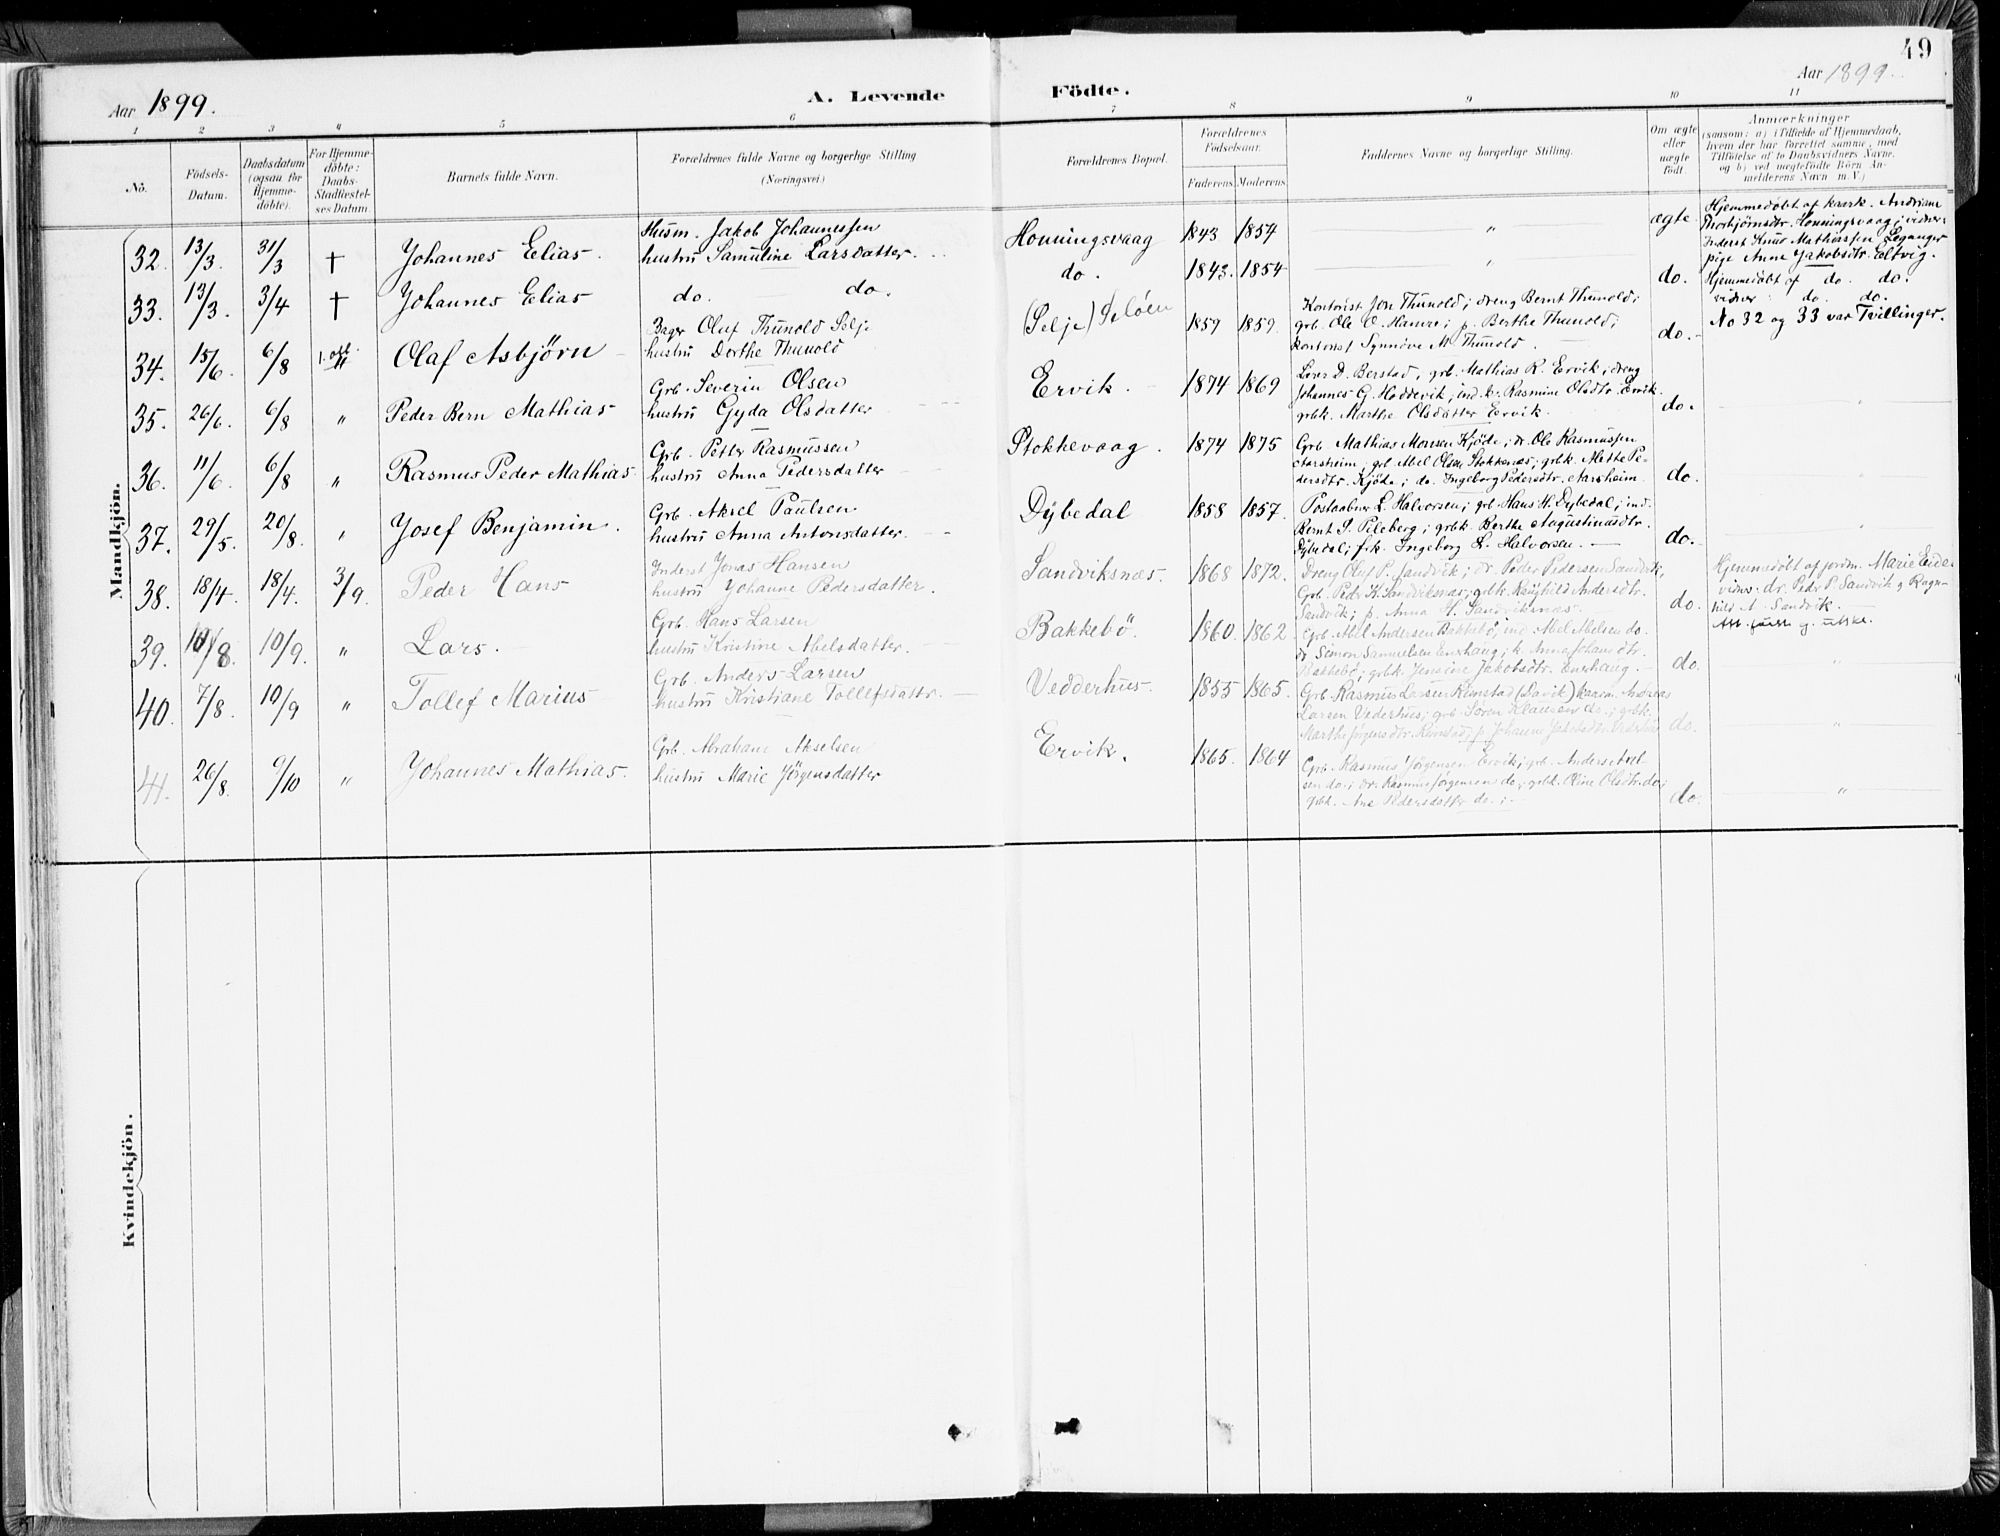 49
Aar 1899.
A. Levende Födte.
Aar 1899.
1 2 3 4 5 6 7 8 9 10 11
No.
Födsels-Datum.
Daabsdatum (ogsaa for Hjemme-döbte).
For Hjemme-döbte: Daabs-Stadfæstel-ses Datum.
Barnets fulde Navn.
Forældrenes fulde Navne og borgerlige Stilling (Næringsvei.)
Forældrenes Bopæl.
Forældrenes Födselsaar.
Faderens. Moderens.
Faddernes Navne og borgerlige Stilling.
Om ægte eller uægte født.
Anmærkninger
(saasom: a) i Tilfælde af Hjemmedaab,
hvem der har forrettet samme, med
Tilföielse af to Daabsvidners Navne.
og b) ved uægtefödte Börn An-
melderens Navn m. V.)
Mandkjön.
32. 13/3. 31/3 † Johannes Elias.
Husm. Jakob Johannessen
hustru Samuline Larsdatter.
Honningsvaag 1843 1854 " ægte.
Hjemmedøbt af kaark. Andriane
Thorbjørnsdtr. Honningsvaag; vidner:
Inderst Knud Mathiassen Leganger
pige Anne Jakobsdtr. Eltvig.
33. 13/3. 3/4 † Johannes Elias
do. do.
do. 1843. 1854 " do.
Hjemmedøbt af do. do.
vidner: do. do.
No 32 og 33 var Tvillinger.
34. 15/6. 6/8 Olaf Asbjörn
Bager Oluf Thunold Selje
hustru Dorthe Thunold
(Selje) Seløen 1859 1859.
Kontorist Jon Thunold; dreng Bernt Thunold;
grb. Ole O. Hamre; p. Berthe Thunold;
kontorist Synnöve M. Thunold. do.
35. 26/6. 6/8 " Peder Bern Mathias
Grb. Severin Olsen
hustru Gyda Olsdatter
Ervik. 1874 1869
Lærer D. Berstad, grb. Mathias R. Ervik; dreng
Johannes G. Hoddevik; ind. k. Rasmine Olsdtr. Ervik.
grbk. Marthe Olsdatter Ervik. do. "
36. 11/6. 6/8 " Rasmus Peder Mathias.
Grb. Petter Rasmussen
hustru Anna Pedersdatter
Stokkevaag. 1874 1875
Grb Mathias Monsen Kjöde; dr. Ole Rasmussen
Aarsheim, grb. Abel Olsen Stokkenæs; grbk. Mette Pe-
dersdtr. Kjöde; do. Ingeborg Pedersdtr. Aarsheim. do. "
37. 29/5. 20/8. " Josef Benjamin.
Grb. Aksel Paulsen
hustru Anna Antonsdatter
Dybedal 1858 1857.
Postaabner L. Halvorsen; grb. Hans H. Dybedal; ind.
Bernt S. Pileberg; grbk. Berthe Augustinusdtr.
Dybedal; frk. Ingeborg L. Halvorsen. do. "
38. 18/4. 18/4. 3/9. Peder Hans
Inderst Jonas Hansen
hustru Johanne Pedersdatter.
Sandviksnæs. 1868 1872.
Dreng Oluf P. Sandvik; dr. Peder Pedersen Sandvik,
Grb. Peder K. Sandviksnæs; grbk. Ragnhild Andersdtr.
Sandvik; p. Anna H. Sandviksnæs. do.
Hjemmedøbt af jordm. Marie Eide
vidner: dr. Peder P. Sandvik og Ragn-
hild A. Sandvik.
39. 10/8. 10/9. " Lars.
Grb. Hans Larsen
hustru Kristine Abelsdatter.
Bakkebö. 1860. 1862
Grb. Abel Andersen Bakkebö; ind. Abel Abelsen do.
dr. Simon Samuelsen Enerhaug; k. Anna Johansdtr.
Bakkebö; grbk. Jensine Jakobsdtr. Enerhaug. do. "
40. 7/8. 10/9 " Tollef Marius
Grb. Anders Larsen
hustru Kristiane Tollefsdattr.
Vedderhus. 1855 1865.
Grb. Rasmus Larsen Rimstad (Davik) kaarm. Andreas
Larsen Vederhus; grb. Sören Klausen do.; grbk.
Marthe Jörgensdtr. Rimstad; p. Johanne Jakobsdtr. Vederhus do. "
41. 26/8. 9/10 " Johannes Mathias.
Grb. Abraham Akselsen
hustru Marie Jörgensdatter
Ervik. 1865. 1864
Grb. Rasmus Jörgensen Ervik; grb. Anders Aksel-
sen do.; dr. Rasmus Jörgensen do.; grbk. Oline Olsdtr. do;
grbk. Ane Pedersdatter do.; do. "
Kvindekjön.